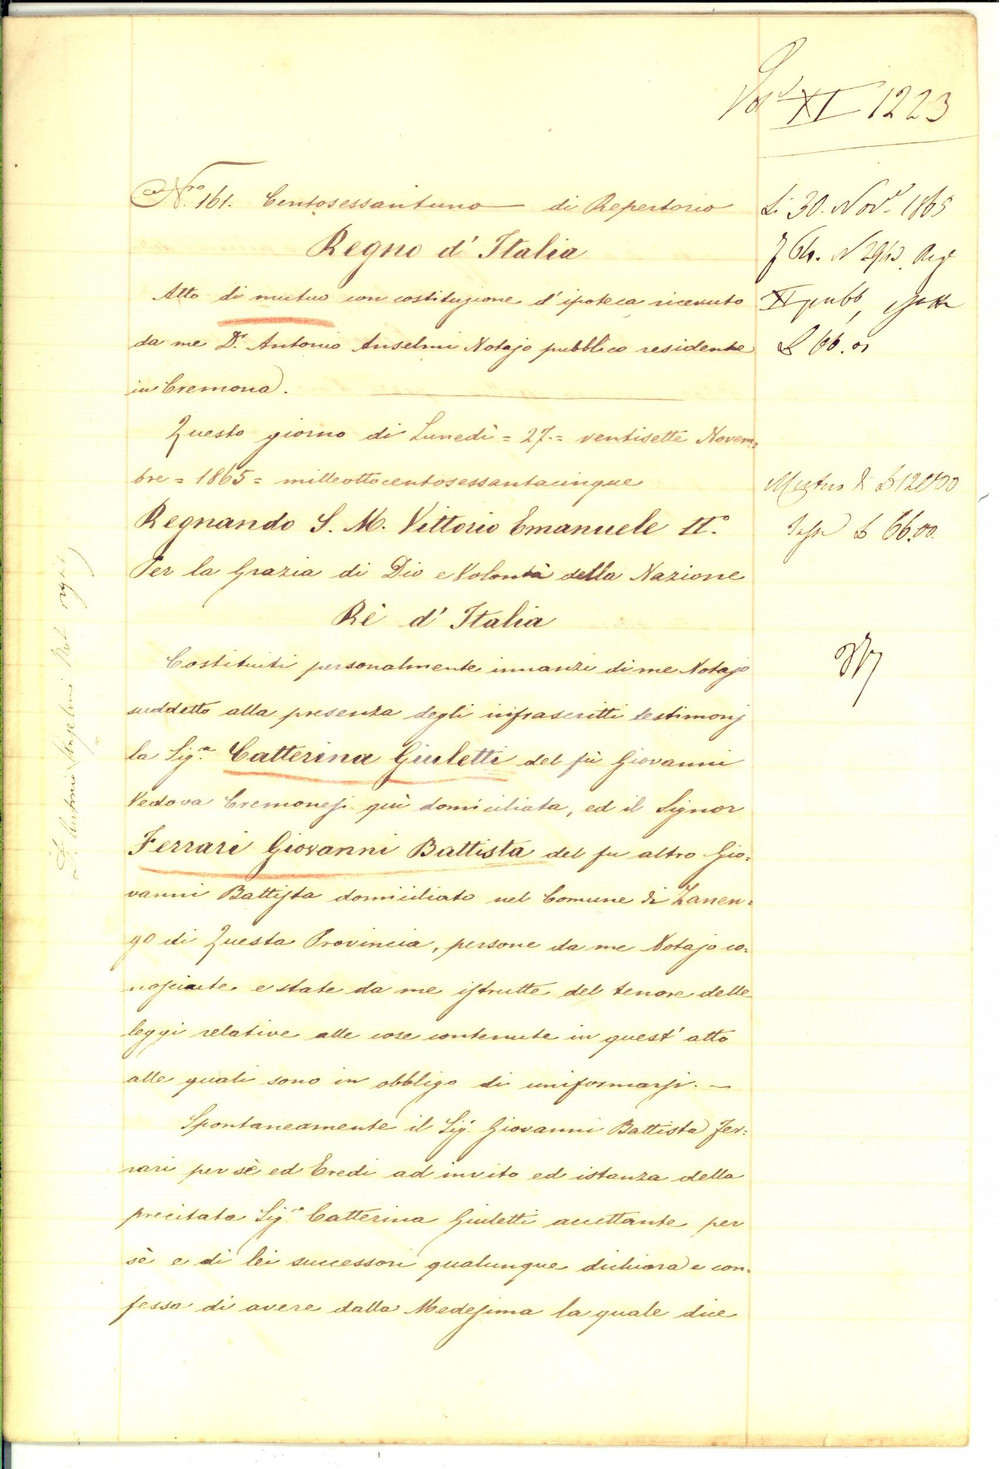 Vol. XI 1223
N.ro 161. Centosessantuno di Repertorio
Regno d' Italia
Atto di mutuo con costituzione d' ipoteca ricevuto
da me D.r Antonio Anselmi Notajo pubblico residente
in Cremona.
Questo giorno di Lunedì = 27 = ventisette Novem=
bre = 1865 = milleottocentosessantacinque
Regnando S. M. Vittorio Emanuele II.°
Per la Grazia di Dio e Volontà della Nazione
Rè d' Italia
Costituiti personalmente innanzi di me Notajo
suddetto alla presenza degli infrascritti testimonj
la Sig.ra Catterina Giuletti del fù Giovanni
Vedova Cremonesi quì domiciliata, ed il Signor
Ferrari Giovanni Battista del fu altro Gio=
vanni Battista domiciliato nel Comune di Zanen=
go di Questa Provincia, persone da me Notajo co=
nosciute e state da me istrutte del tenore delle
leggi relative alle cose contenute in quest' atto
alle quali sono in obbligo di uniformarsi. —
Spontaneamente il Sig. Giovanni Battista Fer=
rari per sè ed Eredi ad invito ed istanza della
precitata Sig.ra Catterina Giuletti accettante per
sè e di lei successori qualunque dichiara e con=
fessa di avere dalla Medesima la quale dice
Li 30. Nov. 1865
XI pubb
£ 66.01
Mutuo £ 12000
Tassa £ 66.00
D. Antonio Anselmi Not.